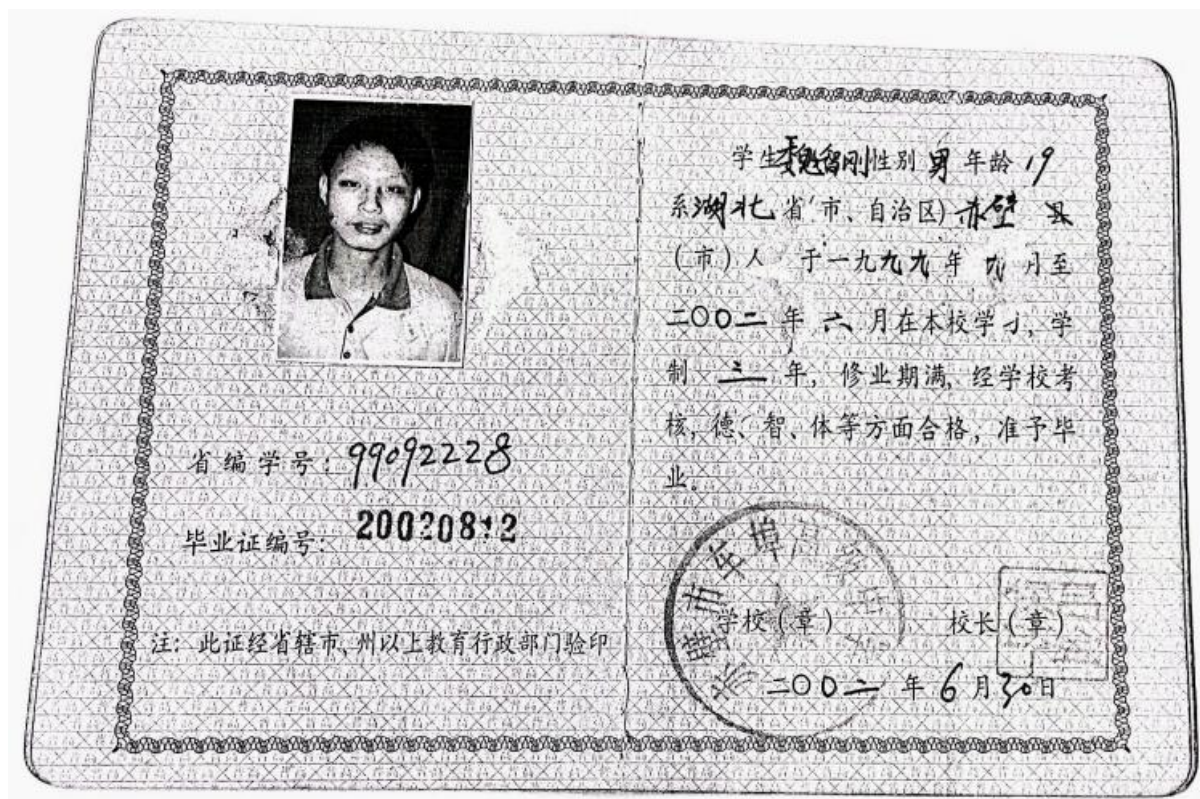 省编学号: 99092228
毕业证编号: 20020812
注: 此证经省辖市、州以上教育行政部门验印
学生魏智刚性别 男 年龄 19
系湖北省(市、自治区)赤壁 县
(市)人 于一九九九年 九 月至
二〇〇二 年 六 月在本校学习, 学
制 三 年, 修业期满, 经学校考
核, 德、智、体等方面合格, 准予毕
业。
赤壁市车埠高级中学
学校(章) 校长(章)
二〇〇二 年 6 月 30 日